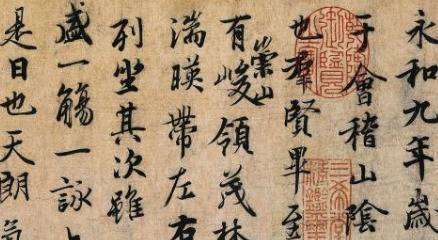 永和九年歲
于會稽山陰
也羣賢畢至
有崇山峻領茂林
湍暎帶左右
列坐其次雖
盛一觴一詠
是日也天朗氣